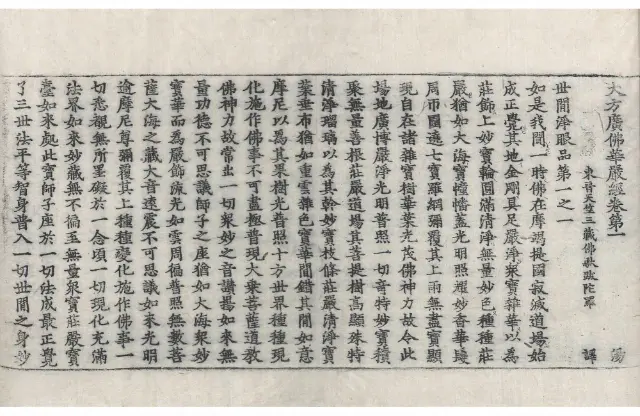 大方廣佛華嚴經卷第一 湯
東晉天竺三藏佛馱跋陀羅 譯
世間淨眼品第一之一
如是我聞一時佛在摩竭提國寂滅道場始
成正覺其地金剛具足嚴淨衆寶雜華以為
莊飾上妙寶輪圓滿清淨無量妙色種種莊
嚴猶如大海寶幢幡蓋光明照耀妙香華鬘
周帀圍遶七寶羅網彌覆其上雨無盡寶顯
現自在諸雜寶樹華葉光茂佛神力故令此
場地廣博嚴淨光明普照一切奇特妙寶積
聚無量善根莊嚴道場其菩提樹高顯殊特
清淨瑠璃以為其幹妙寶枝條莊嚴清淨寶
葉垂布猶如重雲雜色寶華間錯其間如意
摩尼以為其果樹光普照十方世界種種現
化施作佛事不可盡極普現大乘菩薩道教
佛神力故常出一切衆妙之音讚揚如來無
量功德不可思議師子之座猶如大海衆妙
寶華而為嚴飾流光如雲周徧普照無數菩
薩大海之藏大音遠震不可思議如來光明
逾摩尼尊彌覆其上種種變化施作佛事一
切悉覩無所罣礙於一念頃一切現化充滿
法界如來妙藏無不徧至無量衆寶莊嚴寶
臺如來處此寶師子座於一切法成最正覺
了三世法平等智身普入一切世間之身妙